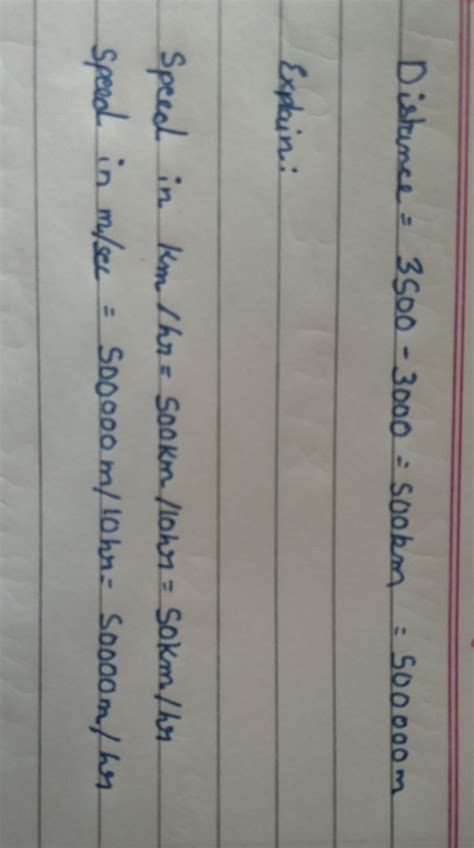 Distance = 3500 - 3000 = 500km = 500000m
Explain:
Speed in km/hr = 500km/10hr = 50km/hr
Speed in m/sec = 500000m/10hr = 50000m/hr